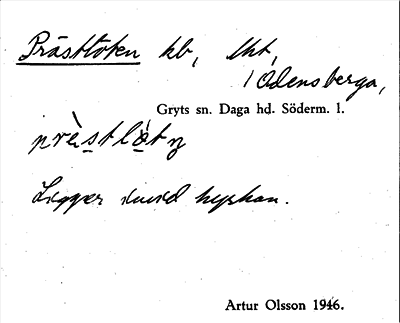 Prästloten kb, tht,
i Odensberga,
Gryts sn. Daga hd. Söderm. l.
Ligger invid kyrkan.
Artur Olsson 1946.